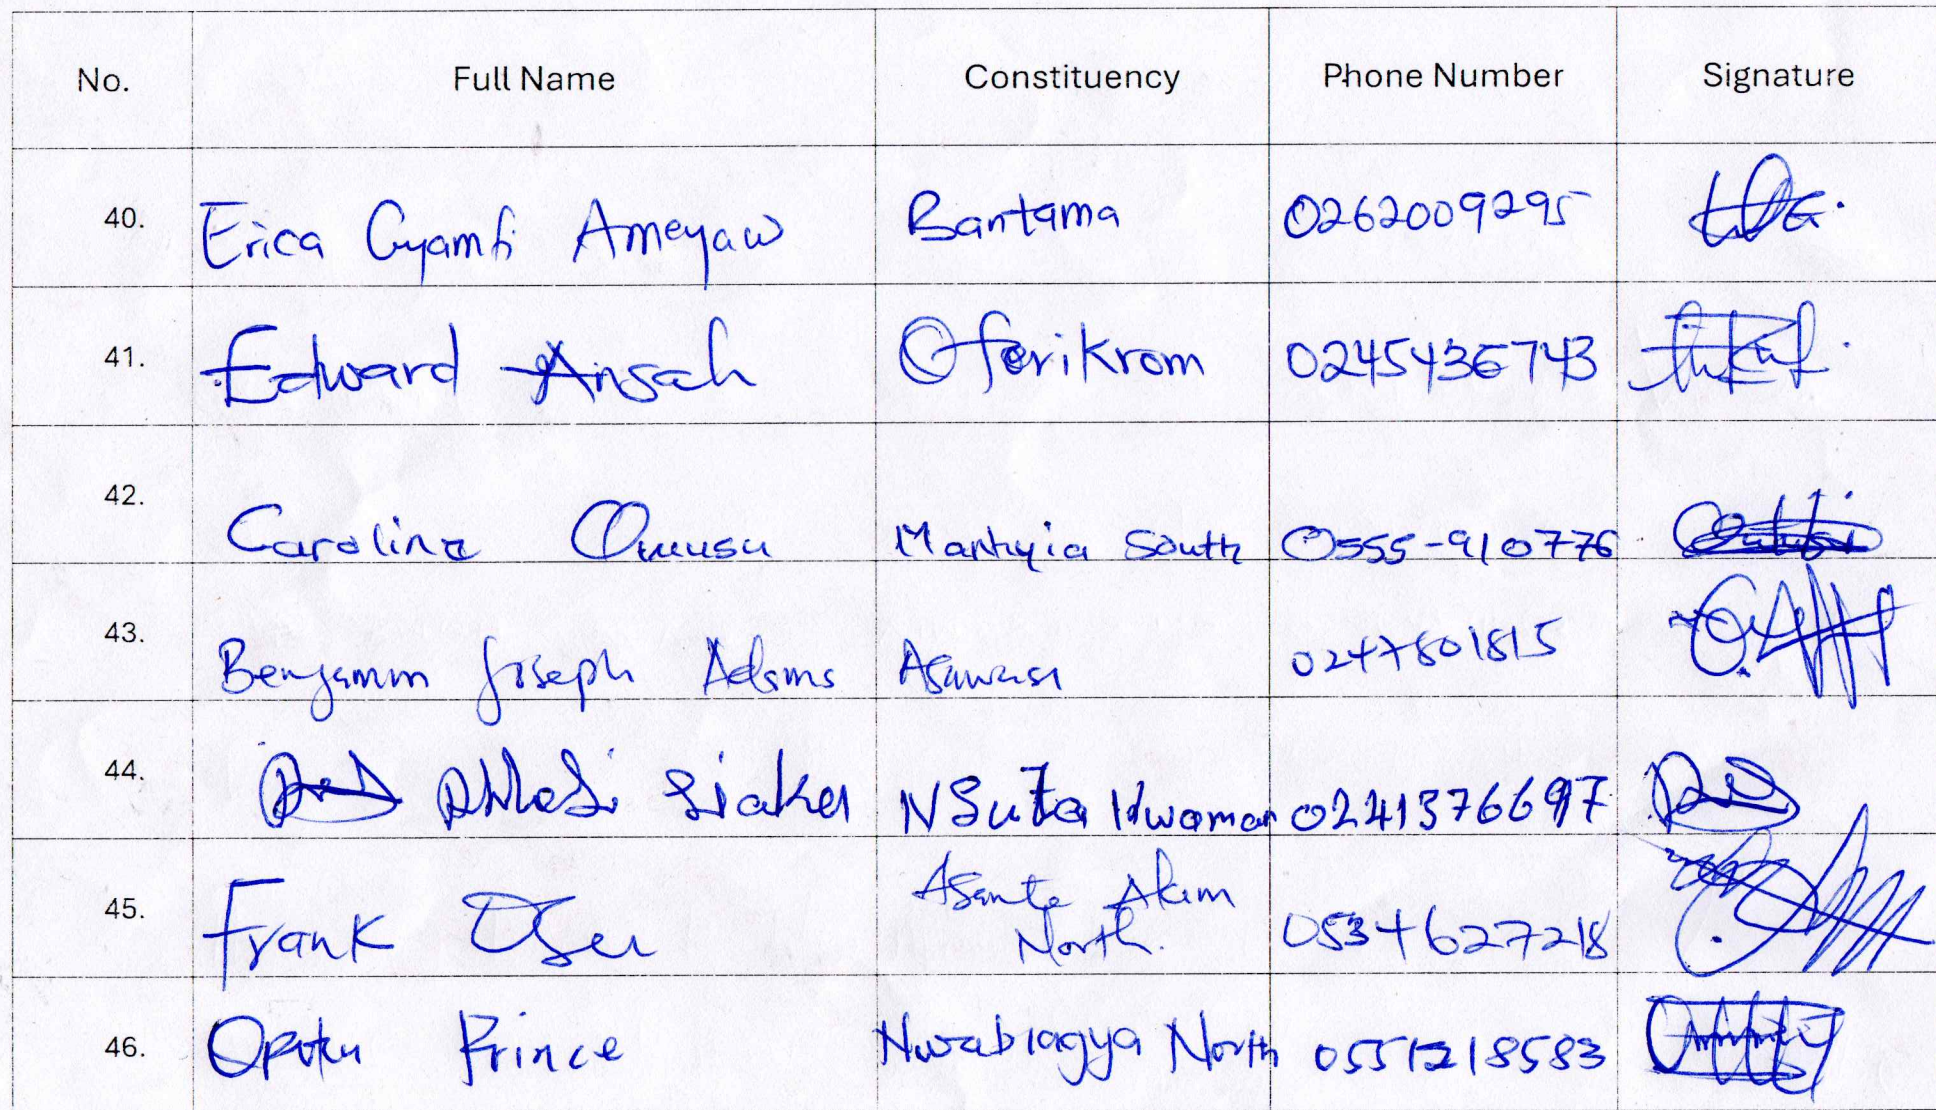 No. Full Name Constituency Phone Number Signature
40. Erica Gyamfi Ameyaw Bantama 0262009295
41. Edward Ansah Oforikrom 0245436743
42. Caroline Owusu Manhyia South 0555-910776
43. Benjamin Joseph Adams Asawasi 0247801815
44. Siaka NSuta Kwaman 0241376697
45. Frank Osei Asante Akim
North. 0534627218
46. Opoku Prince Nwabiagya North 0551218583